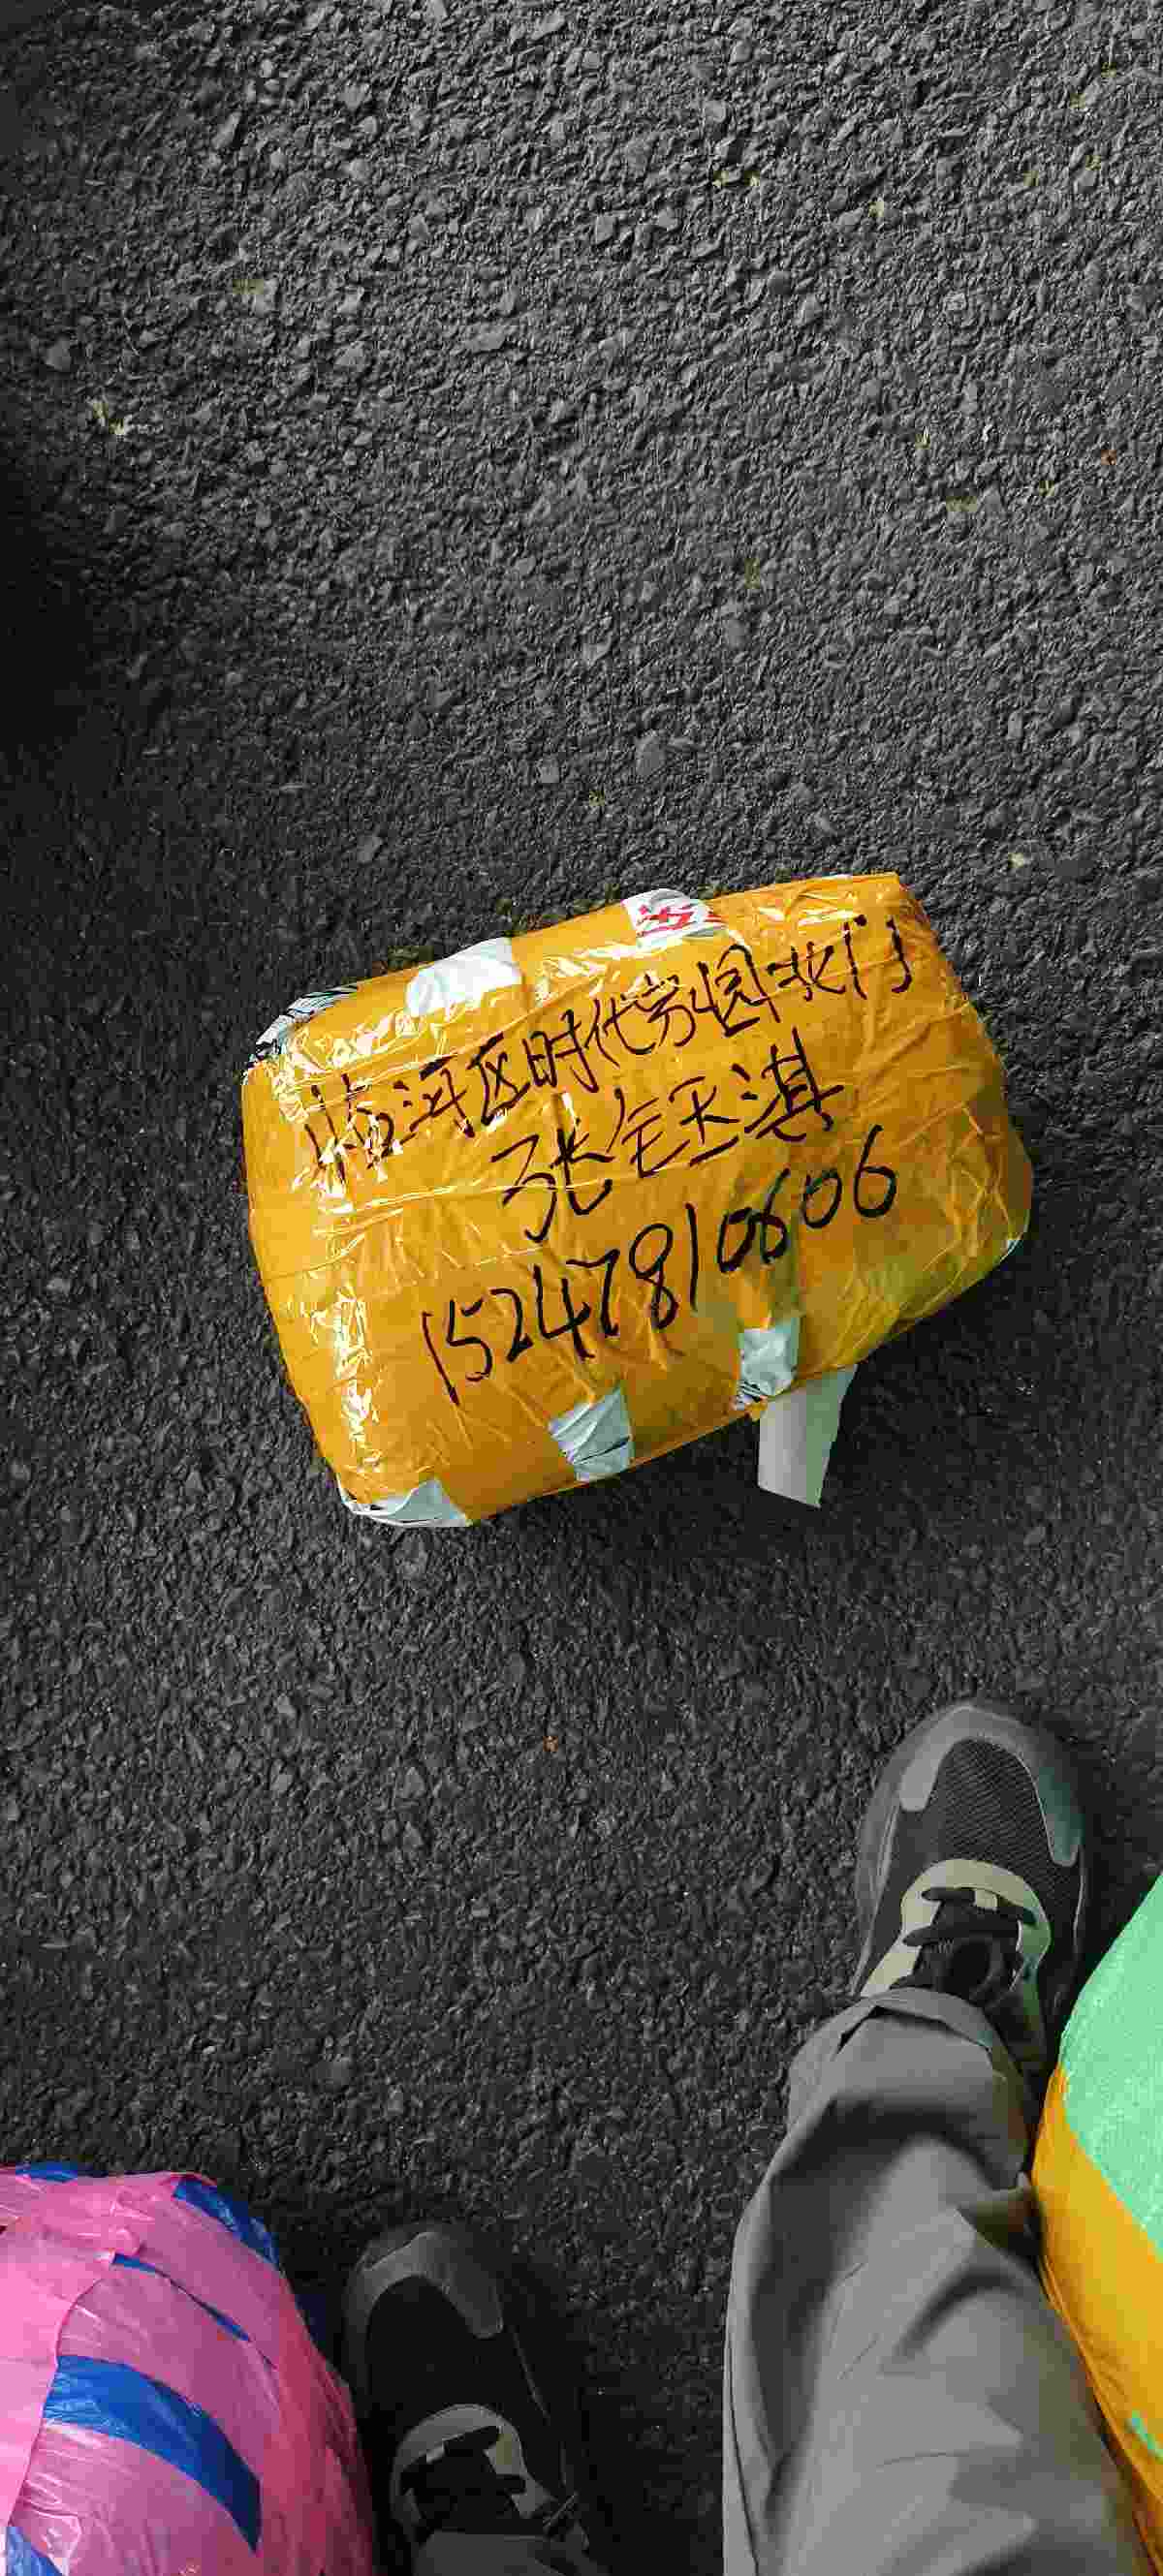 临河区时代芳园北门
张钰淇
15247810606